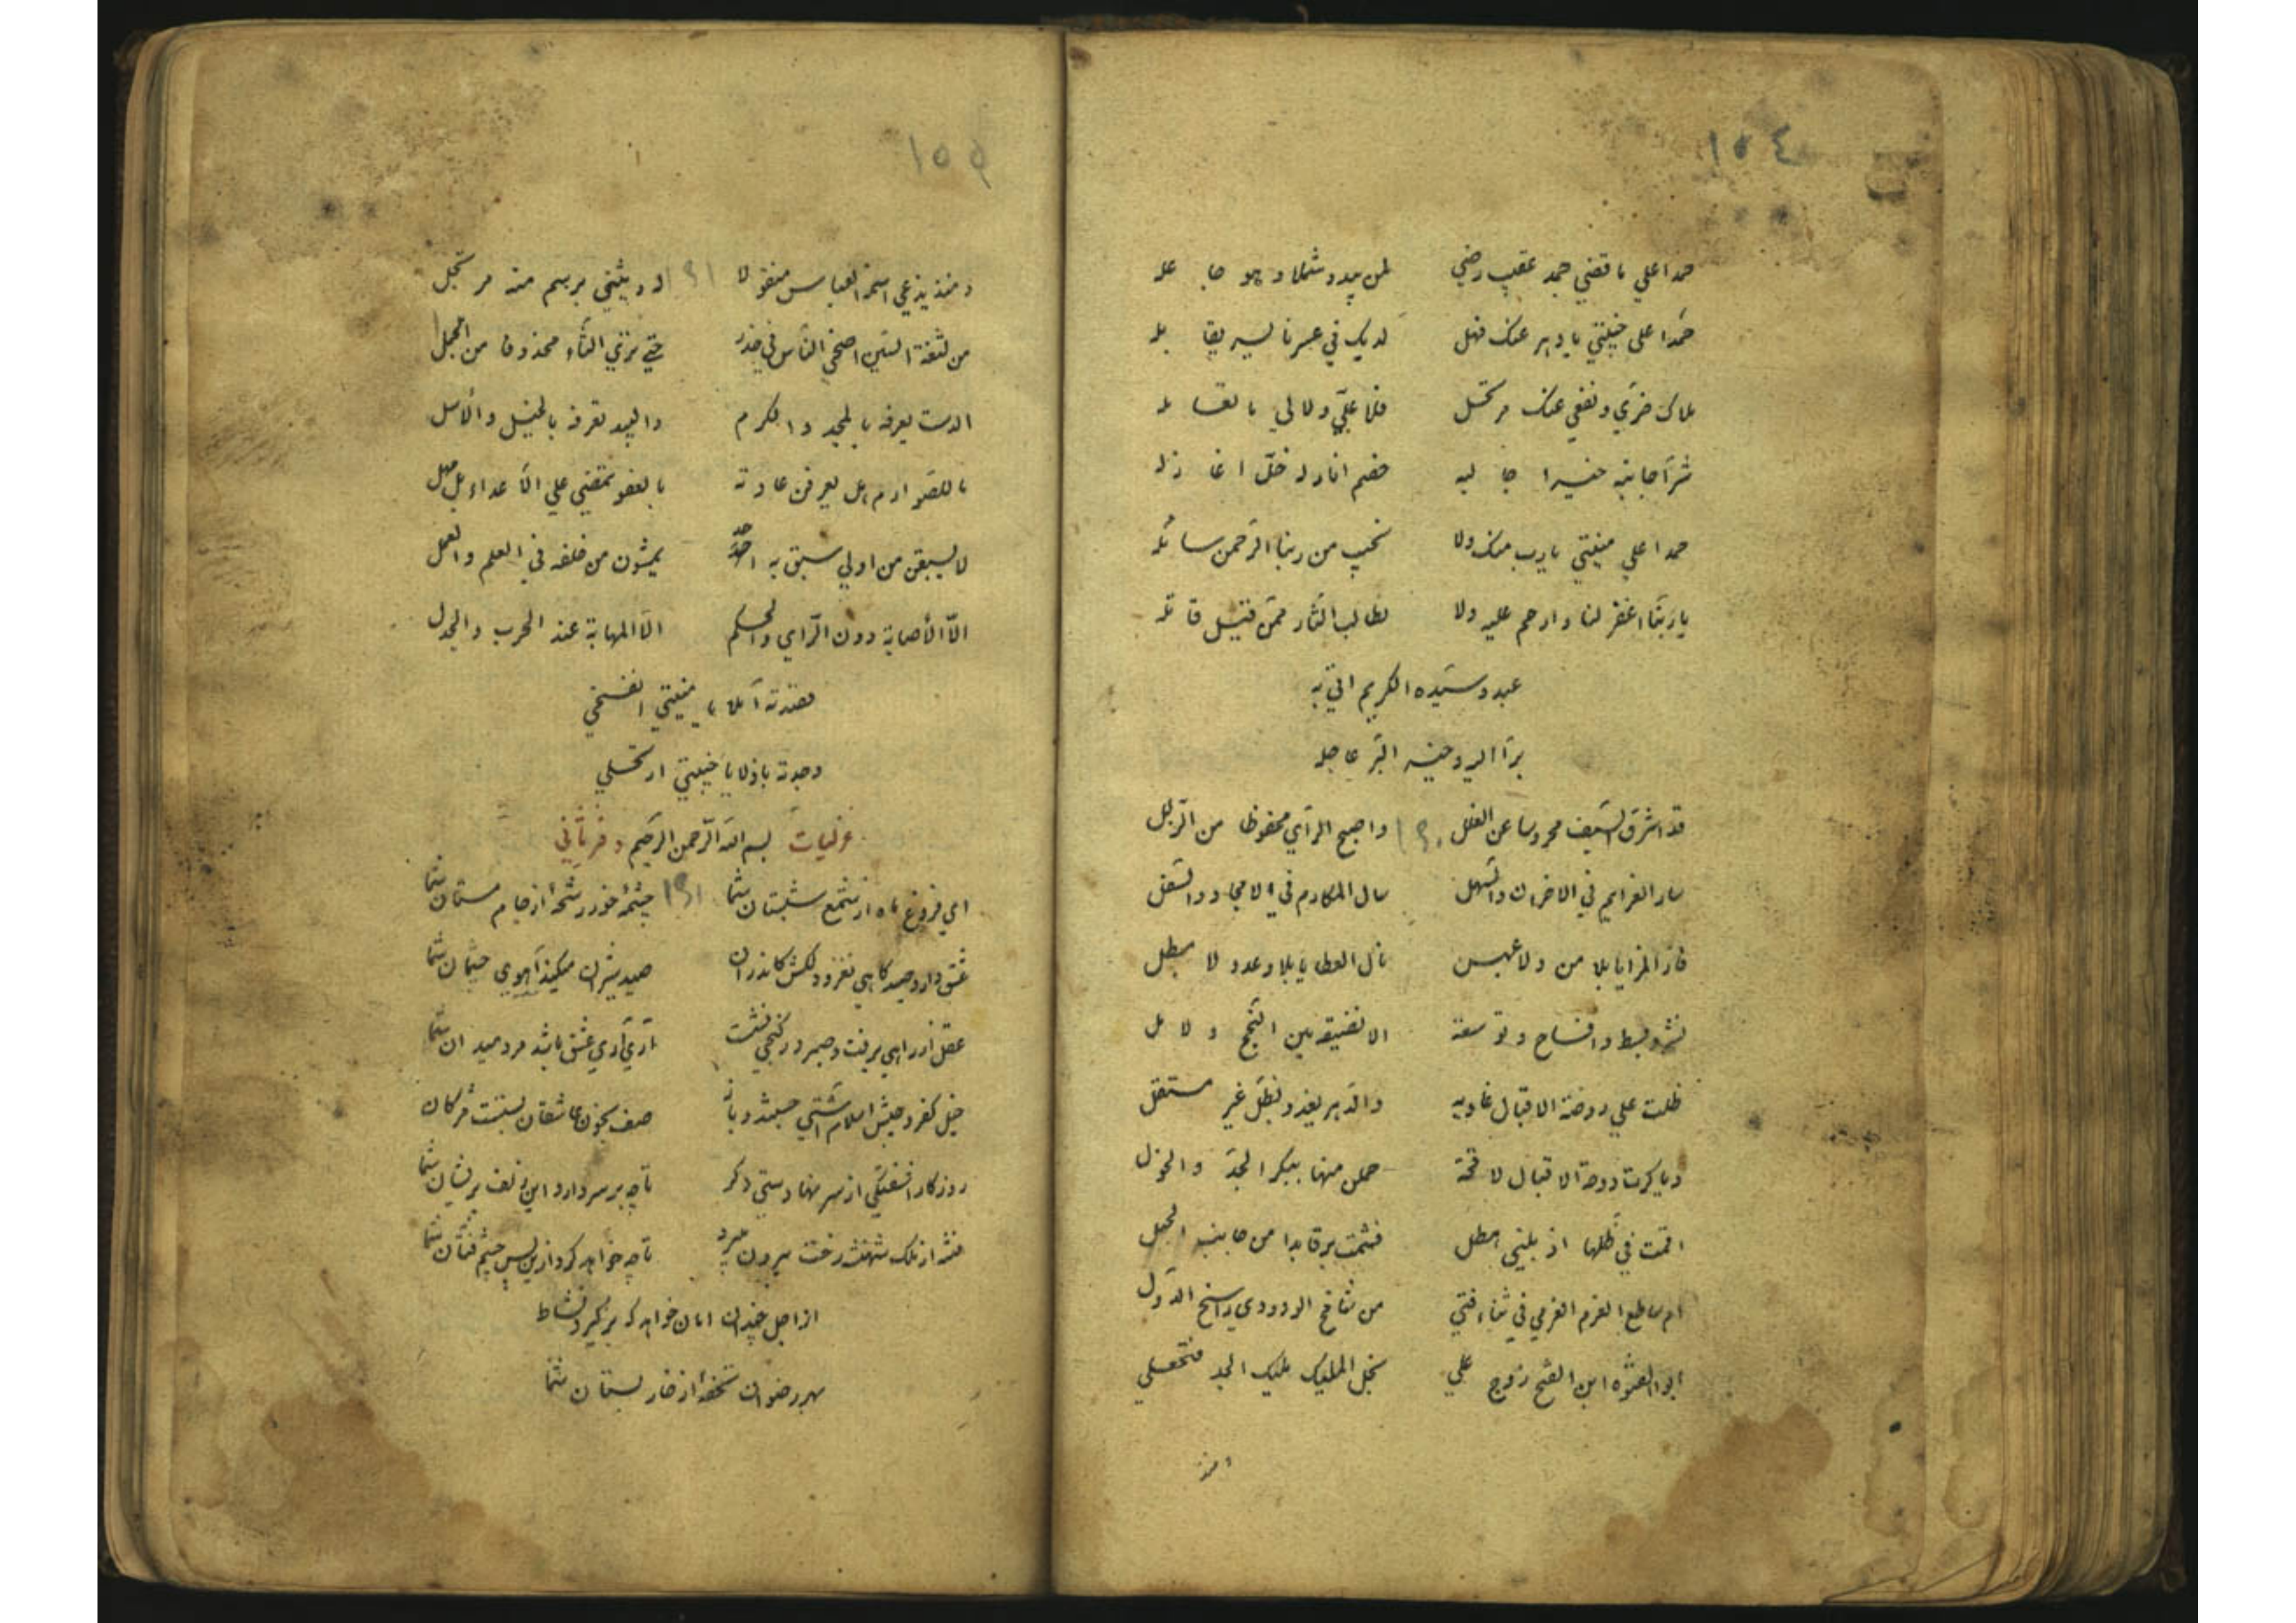 ١٥٤
حمدا علي ما قضي حمد عقب رضي لمن يبدو شملا و هو جا عله
حمدا علي خيبتي يا دهر عنك فهل لديك في عسرنا ليس يقا بله
ملاك ضري و نفعي عنك مرتحل فلا علي ولا لي ما تعا مله
شرا جانبه خيرا جا لبه خصم انادله خل اغا زله
حمدا علي منيتي يا رب منك ولا تخيب من ربنا الرحمن سائله
يا ربنا اغفر لنا وارحم عليه ولا لطالب الثار ممن قتيل قاتله
عبد و سيده الكريم اتي به
برا اليه و خير البر عاجله
قد اشرق السيف محروسا عن الفلل ١٩٠ واصبح الراي محفوظا من الزلل
سار العزايم في الاخزان والسهل سال المكارم في الامجاد والسفل
فاز المزايا بلا من ولا نال العطايا بلا وعد ولا مطل
نشر و بسط وافساح و توسعة الا تضيقه بين
ظلت علي روضة الاقبال غاديه والدهر يغدو بظل غير مستقل
وباكرت دوحة الاقبال لاقحة حملن منها ببكر الجد والهزل
اقمت في ظلها اذ بليني هطل فشمت برقا بدا من جانب الجبل
ام ساطع العزم العزمي في ثناء فتي من شافع الودودي راسخ الدول
ابو ابن الفتح زوج علي نجل المليك مليك المجد فتحعلي
امنذ
١٥٥
و منذ يدعي اسم العباس منقولا ١٩١ له و يثني برسم منه مرتجل
من لثغة السين اضحي الناس في حذر حتي نري الثاء محذوفا من الجمل
الدست يعرفه بالمجد والكرم والبيد تعرفه بالخيل والاسل
ما للصوارم هل يعرفن عادته بالعفو تمضي علي الاعداء بل مهل
لا يسبقن من اولي سبق به احد يمشون من خلفه في العلم والعمل
الا الاصابة دون الراي والحكم الا المهابة عند الحرب والجدل
قصدته آملا يا منيتي انفسخي
وجدته باذلا يا خيبتي ارتحلي
غزليات بسم الله الرحمن الرحيم و فردياتي
اي فروغ ماه از شمع شبستان شما ١٩١ چشمه خور رشحه از جام مستان شما
عشق دارد صيد كاهي نغز و دلكش كاندران صيد شيران ميكند آهوي چشمان شما
عقل از راهي برفت و صبر در كنجي نشست آري آري عشق باشد مرد ميدان شما
خيل كفر و جيش اسلام آشتي جستند و باز صف بخون عاشقان بستست مژكان شما
روزكار آشفتكي از سر نهادستي دكر تا چه بر سر دارد اين زلف پريشان شما
فتنه از ملك شهنشه رخت بيرون ميبرد تا چه خواهد كرد ازين پس چشم فتان شما
از اجل چندان امان خواهد كه بركيرد نشاط
بهر رضوان تحفه از خار بستان شما